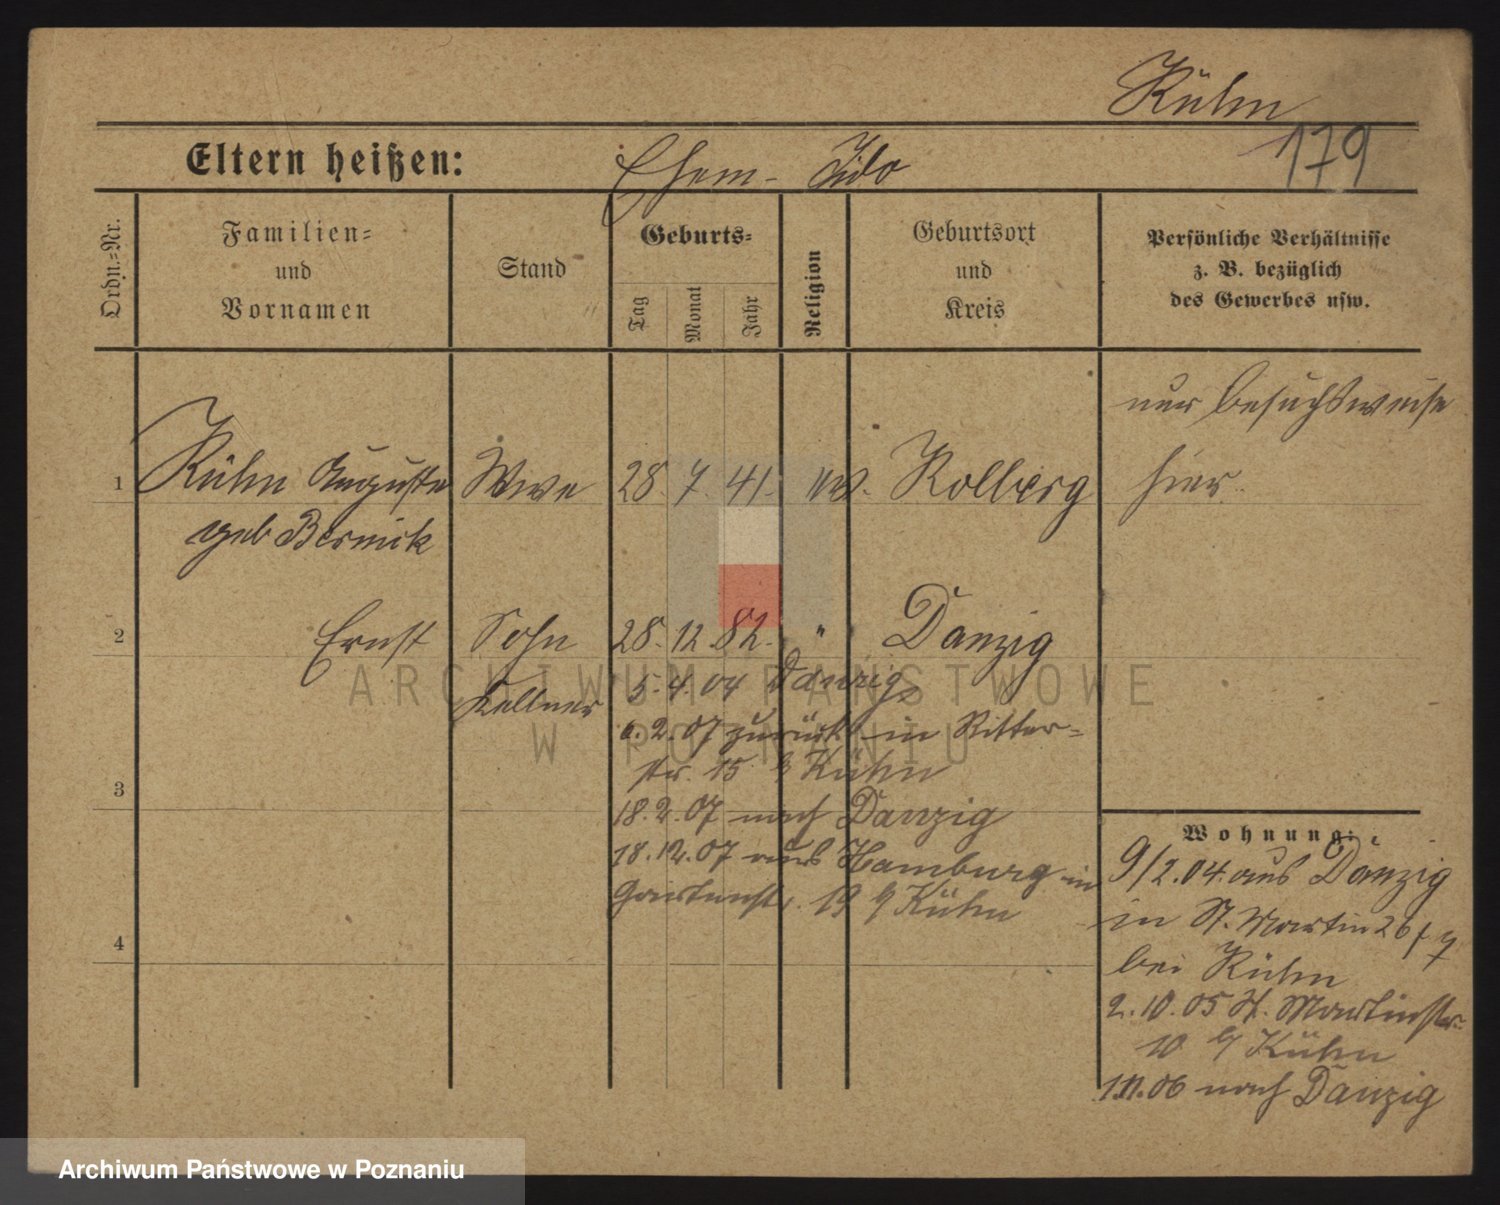 Kühn
179
Eltern heißen: Ehem- Udo
Ordn.-Nr.
Familien-
und
Vornamen
Stand
Geburts-
Tag
Monat
Jahr
Religion
Geburtsort
und
Kreis
Persönliche Verhältnisse
z. B. bezüglich
des Gewerbes usw.
nur besuchsweise
1 Kühn Auguste Wwe 28. 7. 41. ev. Kolberg hier
geb Bernick
2 Ernst Sohn 28. 12. 82. " Danzig
Kellner 5. 4. 04 Danzig
6. 2. 07 zurück in Ritter-
str. 15 b/ Kühn
3
18. 2. 07 nach Danzig
18. 12. 07 aus Hamburg in
Gartenstr. 19 b/ Kühn
4
Wohnung:
9/2. 04. aus Danzig
in St. Martin 26 f
bei Kühn
2. 10. 05 St. Martinstr.
10 b/ Kühn
1.11.06 nach Danzig
ARCHIWUM PAŃSTWOWE
W POZNANIU
Archiwum Państwowe w Poznaniu